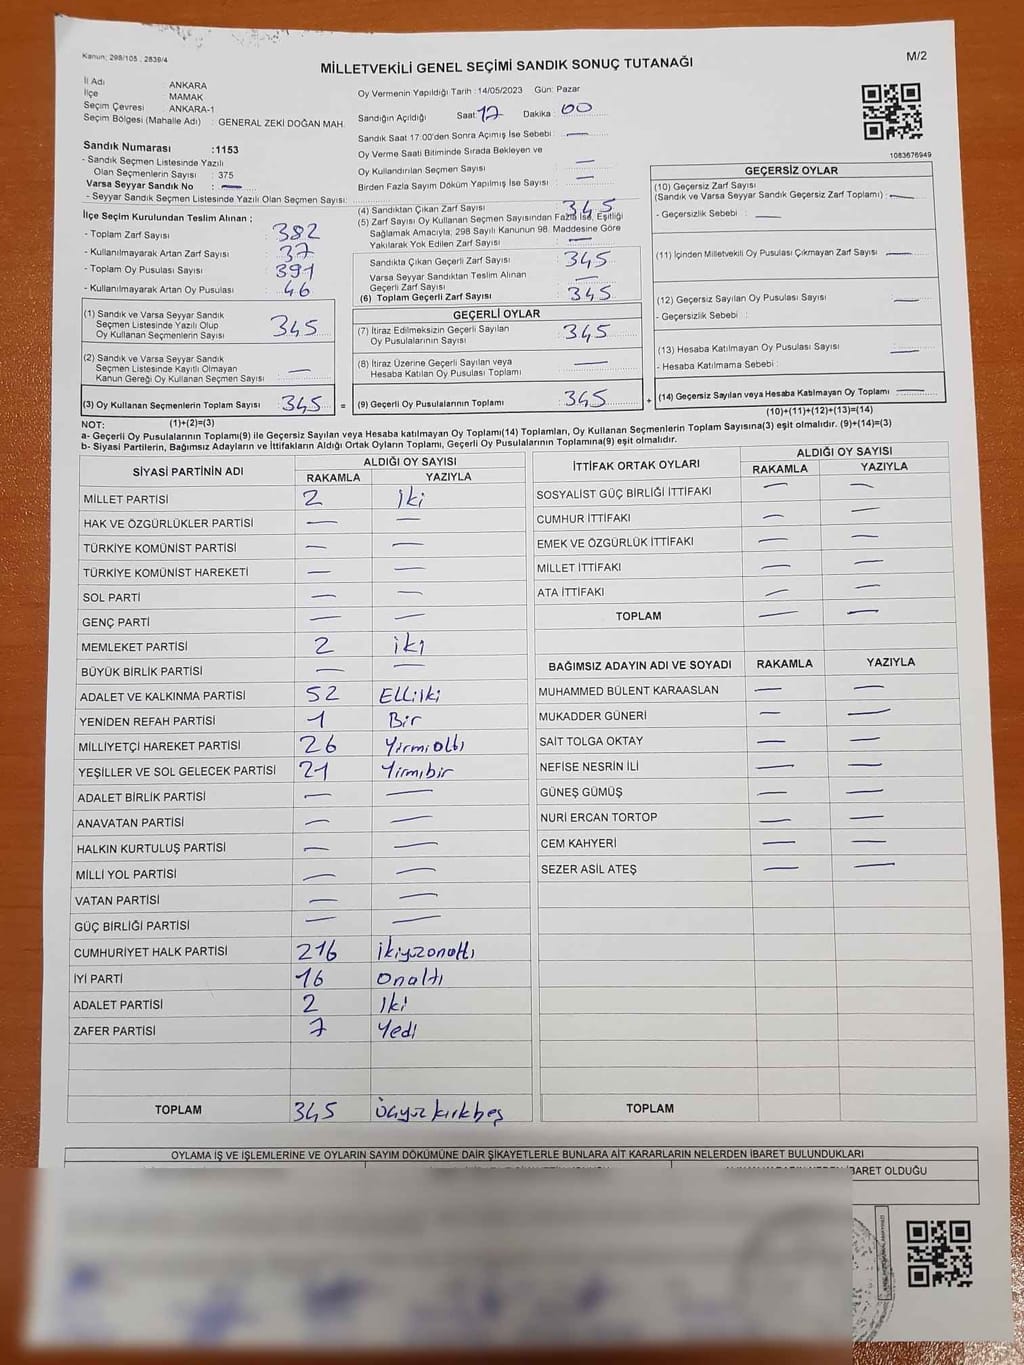 Kanun; 298/105 , 2839/4
M/2
MİLLETVEKİLİ GENEL SEÇİMİ SANDIK SONUÇ TUTANAĞI
İl Adı : ANKARA
İlçe : MAMAK
Seçim Çevresi : ANKARA-1
Seçim Bölgesi (Mahalle Adı) : GENERAL ZEKİ DOĞAN MAH.
Sandık Numarası :1153
- Sandık Seçmen Listesinde Yazılı
Olan Seçmenlerin Sayısı : 375
Varsa Seyyar Sandık No : —
- Seyyar Sandık Seçmen Listesinde Yazılı Olan Seçmen Sayısı:
Oy Vermenin Yapıldığı Tarih : 14/05/2023 Gün: Pazar
Sandığın Açıldığı Saat: 17 Dakika : 00
Sandık Saat 17:00'den Sonra Açımış İse Sebebi : —
Oy Verme Saati Bitiminde Sırada Bekleyen ve
Oy Kullandırılan Seçmen Sayısı : —
Birden Fazla Sayım Döküm Yapılmış İse Sayısı : —
1083676949
İlçe Seçim Kurulundan Teslim Alınan ;
- Toplam Zarf Sayısı : 382
- Kullanılmayarak Artan Zarf Sayısı : 37
- Toplam Oy Pusulası Sayısı : 391
- Kullanılmayarak Artan Oy Pusulası : 46
(1) Sandık ve Varsa Seyyar Sandık
Seçmen Listesinde Yazılı Olup
Oy Kullanan Seçmenlerin Sayısı : 345
(2) Sandık ve Varsa Seyyar Sandık
Seçmen Listesinde Kayıtlı Olmayan
Kanun Gereği Oy Kullanan Seçmen Sayısı : —
(3) Oy Kullanan Seçmenlerin Toplam Sayısı : 345 =
(4) Sandıktan Çıkan Zarf Sayısı : 345
(5) Zarf Sayısı Oy Kullanan Seçmen Sayısından Fazla İse, Eşitliği
Sağlamak Amacıyla, 298 Sayılı Kanunun 98. Maddesine Göre
Yakılarak Yok Edilen Zarf Sayısı : —
Sandıkta Çıkan Geçerli Zarf Sayısı : 345
Varsa Seyyar Sandıktan Teslim Alınan
Geçerli Zarf Sayısı : —
(6) Toplam Geçerli Zarf Sayısı : 345
GEÇERLİ OYLAR
(7) İtiraz Edilmeksizin Geçerli Sayılan
Oy Pusulalarının Sayısı : 345
(8) İtiraz Üzerine Geçerli Sayılan veya
Hesaba Katılan Oy Pusulası Toplamı : —
(9) Geçerli Oy Pusulalarının Toplamı : 345 +
GEÇERSİZ OYLAR
(10) Geçersiz Zarf Sayısı
(Sandık ve Varsa Seyyar Sandık Geçersiz Zarf Toplamı) : —
- Geçersizlik Sebebi : —
(11) İçinden Milletvekili Oy Pusulası Çıkmayan Zarf Sayısı : —
(12) Geçersiz Sayılan Oy Pusulası Sayısı : —
- Geçersizlik Sebebi :
(13) Hesaba Katılmayan Oy Pusulası Sayısı : —
- Hesaba Katılmama Sebebi :
(14) Geçersiz Sayılan veya Hesaba Katılmayan Oy Toplamı : —
NOT: (1)+(2)=(3) (10)+(11)+(12)+(13)=(14)
a- Geçerli Oy Pusulalarının Toplamı(9) ile Geçersiz Sayılan veya Hesaba katılmayan Oy Toplamı(14) Toplamları, Oy Kullanan Seçmenlerin Toplam Sayısına(3) eşit olmalıdır. (9)+(14)=(3)
b- Siyasi Partilerin, Bağımsız Adayların ve İttifakların Aldığı Ortak Oyların Toplamı, Geçerli Oy Pusulalarının Toplamına(9) eşit olmalıdır.
SİYASİ PARTİNİN ADI ALDIĞI OY SAYISI
RAKAMLA YAZIYLA
MİLLET PARTİSİ 2 iki
HAK VE ÖZGÜRLÜKLER PARTİSİ — —
TÜRKİYE KOMÜNİST PARTİSİ — —
TÜRKİYE KOMÜNİST HAREKETİ — —
SOL PARTİ — —
GENÇ PARTİ — —
MEMLEKET PARTİSİ 2 iki
BÜYÜK BİRLİK PARTİSİ — —
ADALET VE KALKINMA PARTİSİ 52 Elliiki
YENİDEN REFAH PARTİSİ 1 Bir
MİLLİYETÇİ HAREKET PARTİSİ 26 Yirmialtı
YEŞİLLER VE SOL GELECEK PARTİSİ 21 Yirmibir
ADALET BİRLİK PARTİSİ — —
ANAVATAN PARTİSİ — —
HALKIN KURTULUŞ PARTİSİ — —
MİLLİ YOL PARTİSİ — —
VATAN PARTİSİ — —
GÜÇ BİRLİĞİ PARTİSİ — —
CUMHURİYET HALK PARTİSİ 216 ikiyüzonaltı
İYİ PARTİ 16 Onaltı
ADALET PARTİSİ 2 iki
ZAFER PARTİSİ 7 Yedi
TOPLAM 345 Üçyüzkırkbeş
İTTİFAK ORTAK OYLARI ALDIĞI OY SAYISI
RAKAMLA YAZIYLA
SOSYALİST GÜÇ BİRLİĞİ İTTİFAKI — —
CUMHUR İTTİFAKI — —
EMEK VE ÖZGÜRLÜK İTTİFAKI — —
MİLLET İTTİFAKI — —
ATA İTTİFAKI — —
TOPLAM — —
BAĞIMSIZ ADAYIN ADI VE SOYADI RAKAMLA YAZIYLA
MUHAMMED BÜLENT KARAASLAN — —
MUKADDER GÜNERİ — —
SAİT TOLGA OKTAY — —
NEFİSE NESRİN İLİ — —
GÜNEŞ GÜMÜŞ — —
NURİ ERCAN TORTOP — —
CEM KAHYERİ — —
SEZER ASİL ATEŞ — —
TOPLAM
OYLAMA İŞ VE İŞLEMLERİNE VE OYLARIN SAYIM DÖKÜMÜNE DAİR ŞİKAYETLERLE BUNLARA AİT KARARLARIN NELERDEN İBARET BULUNDUKLARI
İBARET OLDUĞU